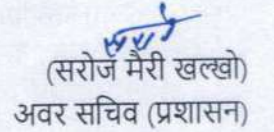 (सरोज मैरी खल्खो)
अवर सचिव (प्रशासन)